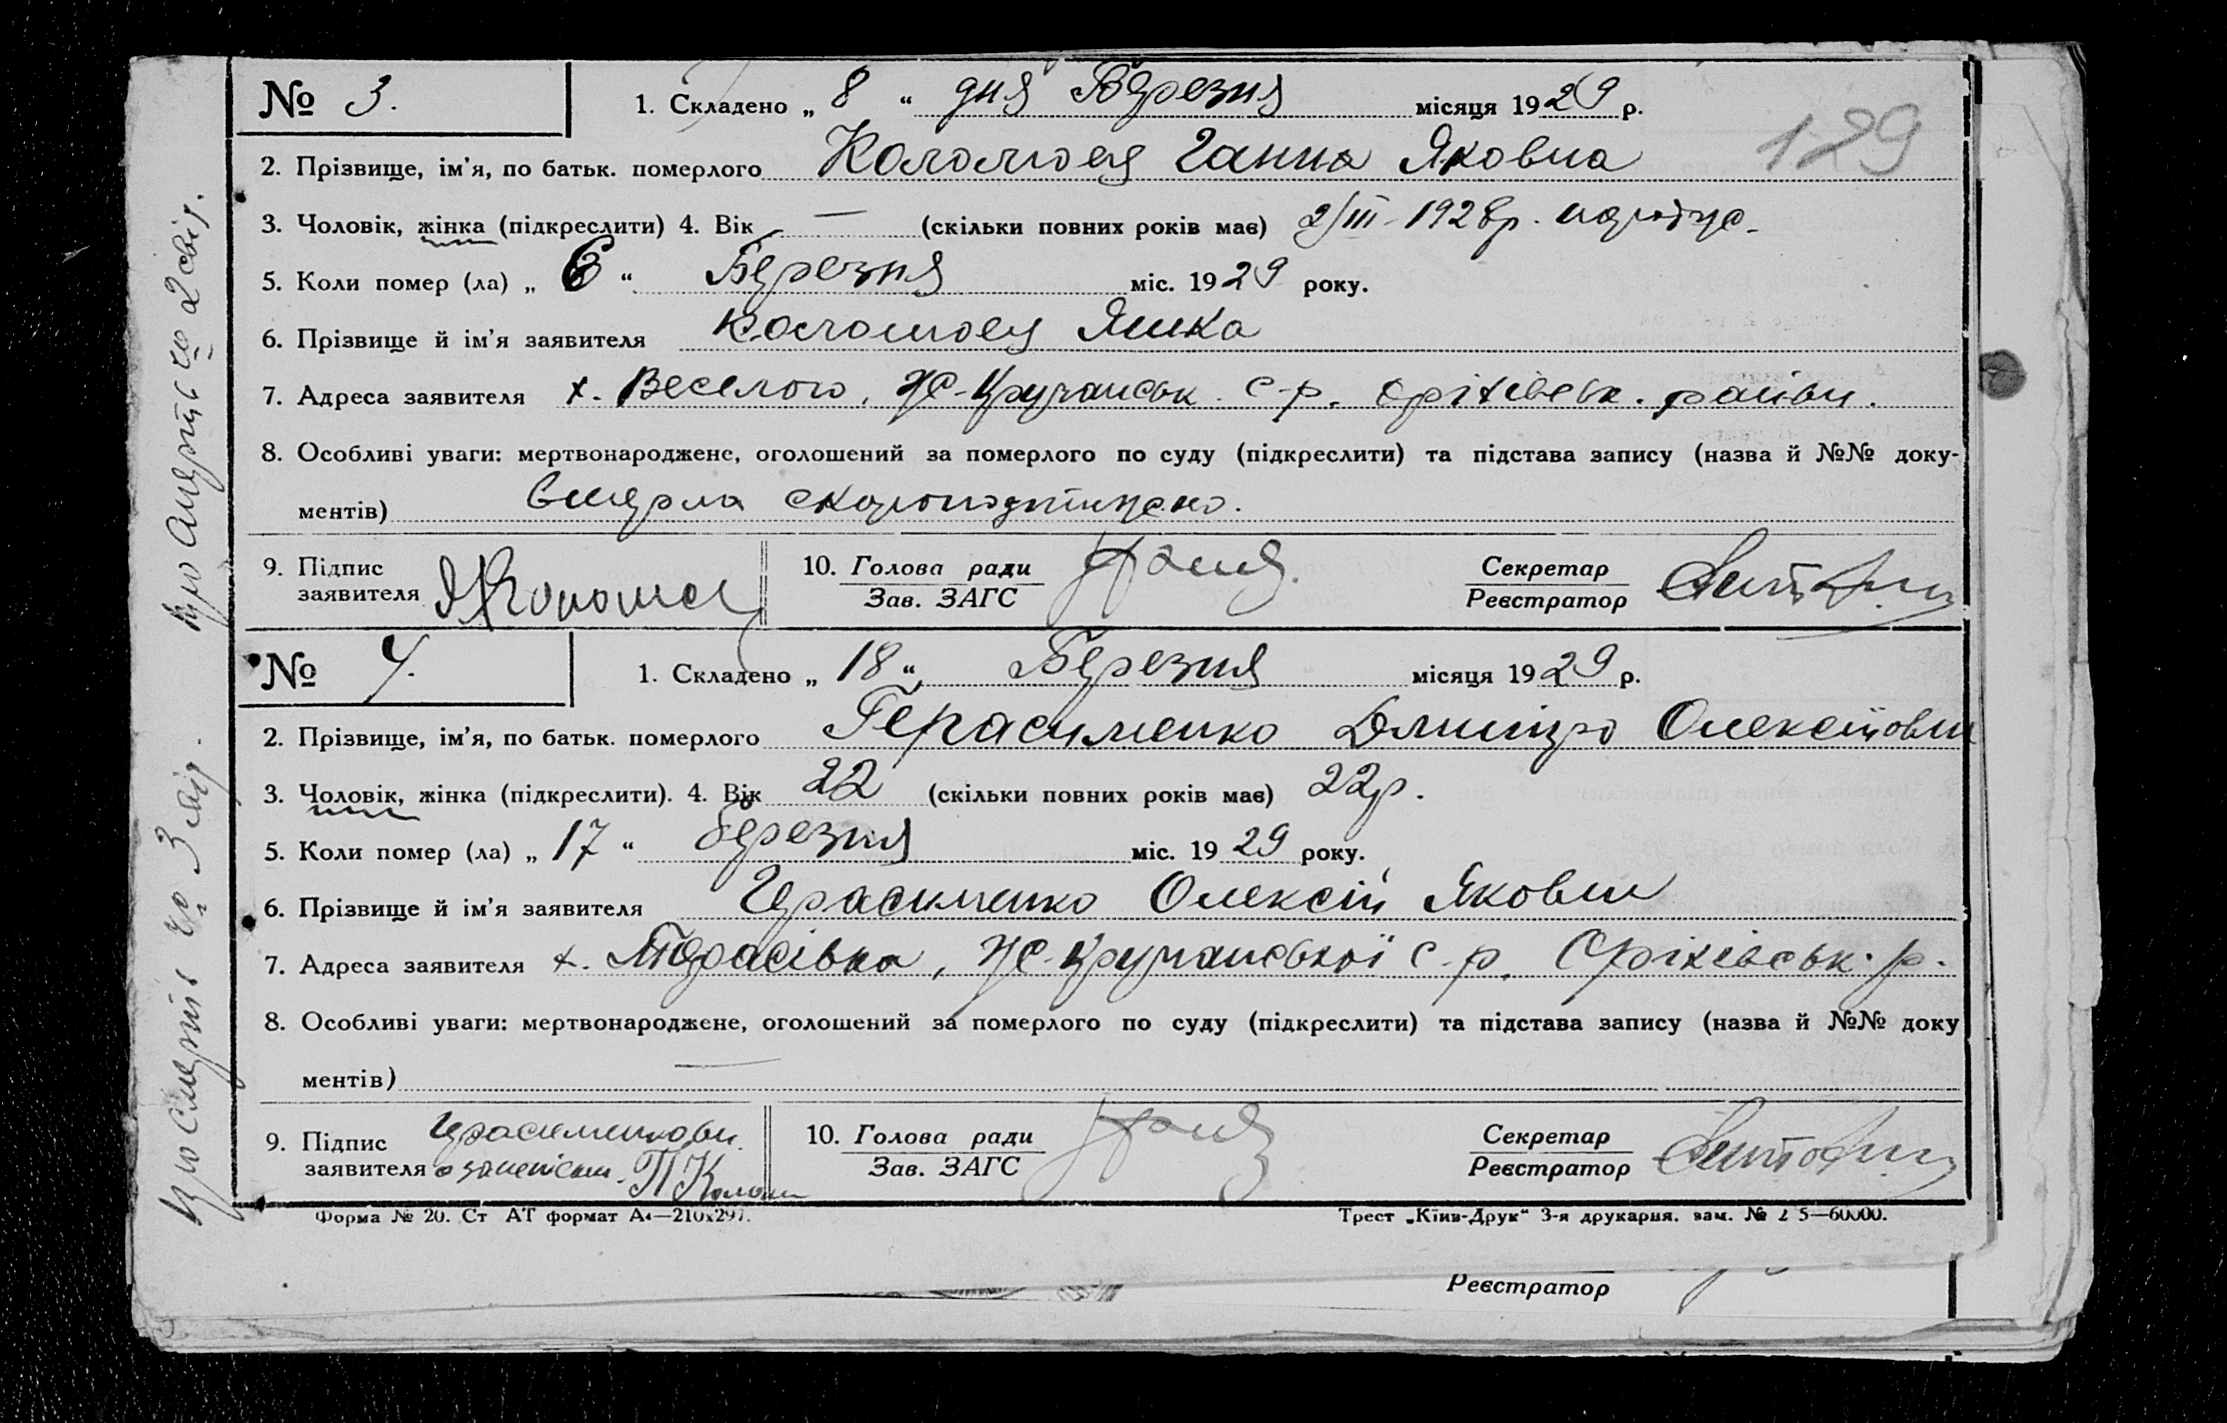 № 3.
1. Складено „ 8 “ дня Березня місяця 1929 р.
129
2. Прізвище, ім’я, по батьк. померлого Коломоец Ганна Яковна
3. Чоловік, жінка (підкреслити) 4. Вік — (скільки повних років має) 2/III-1928р.
5. Коли помер (ла) „ 6 “ Березня міс. 1929 року.
6. Прізвище й ім’я заявителя Коломоец Яшка
7. Адреса заявителя х. Веселого, Же-Кручанськ. с-р. Оріхівськ. району.
8. Особливі уваги: мертвонароджене, оголошений за померлого по суду (підкреслити) та підстава запису (назва й №№ доку-
ментів) вмерла скоропостижно.
9. Підпис
заявителя
10. Голова ради
Зав. ЗАГС
Секретар
Реєстратор
№ 4.
1. Складено „ 18 “ Березня місяця 1929 р.
2. Прізвище, ім’я, по батьк. померлого Герасименко Дмитро Олексійович
3. Чоловік, жінка (підкреслити). 4. Вік 22 (скільки повних років має) 22р.
5. Коли помер (ла) „ 17 “ березня міс. 1929 року.
6. Прізвище й ім’я заявителя Герасименко Олексій Якович
7. Адреса заявителя х. Тарасівка, Же-Кручанської с-р. Оріхівськ. р.
8. Особливі уваги: мертвонароджене, оголошений за померлого по суду (підкреслити) та підстава запису (назва й №№ доку
ментів) —
9. Підпис
заявителя
10. Голова ради
Зав. ЗАГС
Секретар
Реєстратор
Форма № 20. Ст АТ формат А4—210х297.
Трест „Київ-Друк“ 3-я друкарня. зам. № 2 5—60000.
Реєстратор